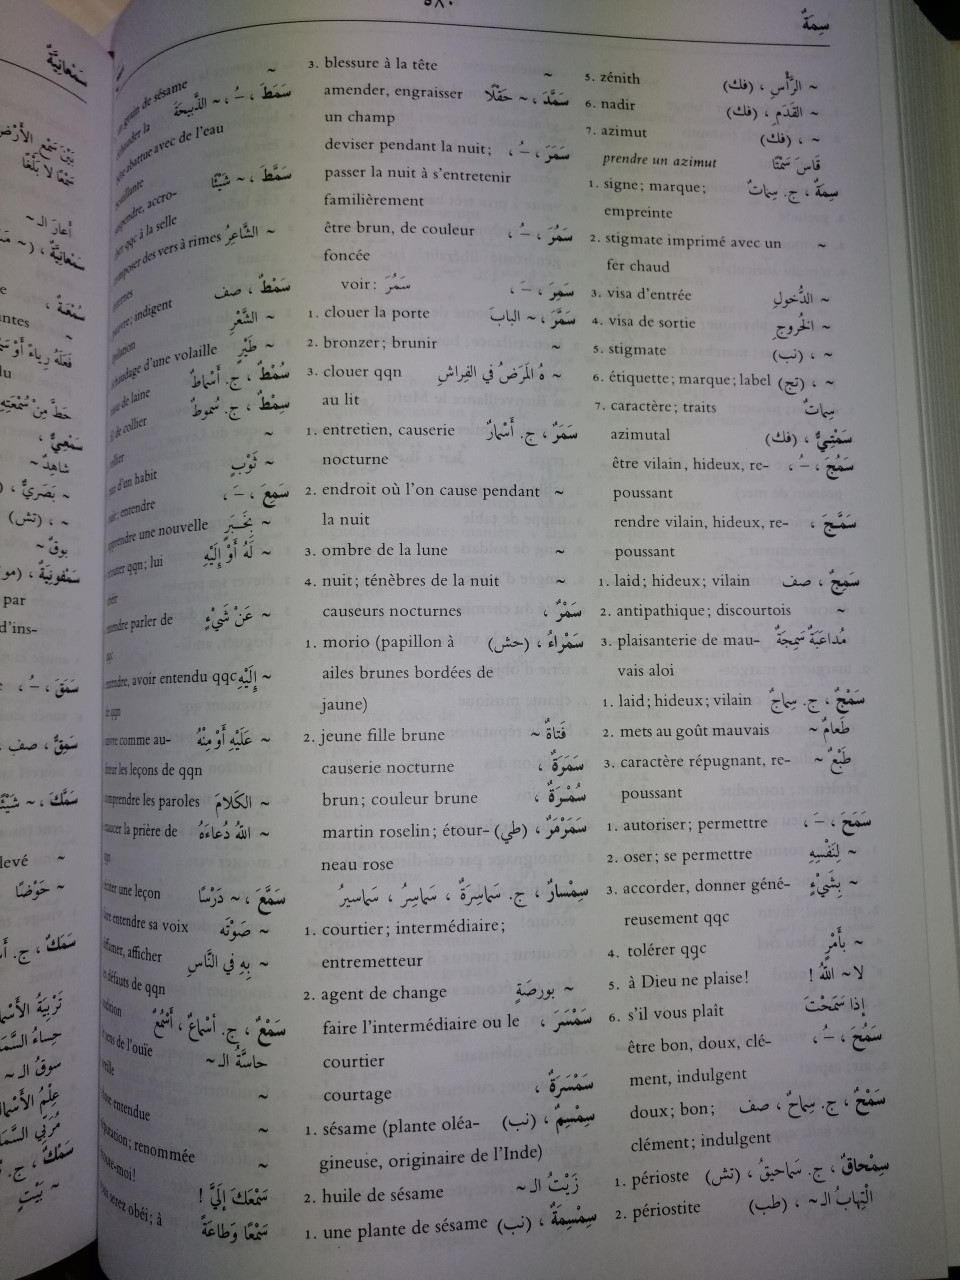 ٥٨٠
سِمَةٌ
~ الرَّأْسِ ، (فك) 5. zénith
~ القَدَمِ ، (فك) 6. nadir
~ ، (فك) 7. azimut
قَاسَ سَمْتًا prendre un azimut
سِمَةٌ ، ج. سِمَاتٌ 1. signe; marque;
empreinte
~ 2. stigmate imprimé avec un
fer chaud
~ الدُّخولِ 3. visa d'entrée
~ الخُروجِ 4. visa de sortie
~ ، (نب) 5. stigmate
~ ، (تج) 6. étiquette; marque; label
سِمَاتٌ 7. caractère; traits
سَمْتِيٌّ ، (فك) azimutal
سَمُجَ ، ـُ ، être vilain, hideux, re-
poussant
سَمَّجَ ، rendre vilain, hideux, re-
poussant
سَمِجٌ ، صف 1. laid; hideux; vilain
~ 2. antipathique; discourtois
مُداعَبَةٌ سَمِجَةٌ 3. plaisanterie de mau-
vais aloi
سَمْجٌ ، ج. سِماجٌ 1. laid; hideux; vilain
طَعامٌ ~ 2. mets au goût mauvais
طَبْعٌ ~ 3. caractère répugnant, re-
poussant
سَمَحَ ، ـَ ، 1. autoriser; permettre
~ لِنَفْسِهِ 2. oser; se permettre
~ بِشَيْءٍ 3. accorder, donner géné-
reusement qqc
~ بِأَمْرٍ 4. tolérer qqc
لا~ اللهُ ! 5. à Dieu ne plaise!
إذا سَمَحْتَ 6. s'il vous plaît
سَمُحَ ، ـُ ، être bon, doux, clé-
ment, indulgent
سَمْحٌ ، ج. سِماحٌ ، صف doux; bon;
clément; indulgent
سِمْحاقٌ ، ج. سَماحيقُ ، (تش) 1. périoste
الْتِهابُ الـ~ ، (طب) 2. périostite
~ 3. blessure à la tête
سَمَّدَ ، ~ حَقْلًا amender, engraisser
un champ
سَمَرَ ، ـُ ، deviser pendant la nuit;
passer la nuit à s'entretenir
familièrement
سَمُرَ ، ـُ ، être brun, de couleur
foncée
سَمِرَ ، ـَ ، voir: سَمُرَ
سَمَّرَ ، ~ البابَ 1. clouer la porte
~ 2. bronzer; brunir
~ هُ المَرَضُ في الفِراشِ 3. clouer qqn
au lit
سَمَرٌ ، ج. أَسْمارٌ 1. entretien, causerie
nocturne
~ 2. endroit où l'on cause pendant
la nuit
~ 3. ombre de la lune
~ 4. nuit; ténèbres de la nuit
سَمْرٌ ، causeurs nocturnes
سَمْراءُ ، (حش) 1. morio (papillon à
ailes brunes bordées de
jaune)
فَتاةٌ ~ 2. jeune fille brune
سَمَرَةٌ ، causerie nocturne
سُمْرَةٌ ، brun; couleur brune
سَمَرْمَرٌ ، (طي) martin roselin; étour-
neau rose
سِمْسارٌ ، ج. سَماسِرَةٌ ، سَماسِرُ ، سَماسيرُ
1. courtier; intermédiaire;
entremetteur
~ بورصَةٍ 2. agent de change
سَمْسَرَ ، faire l'intermédiaire ou le
courtier
سَمْسَرَةٌ ، courtage
سِمْسِمٌ ، (نب) 1. sésame (plante oléa-
gineuse, originaire de l'Inde)
زَيْتُ الـ~ 2. huile de sésame
سِمْسِمَةٌ ، (نب) 1. une plante de sésame
~ grain de sésame
سَمَطَ ، ـُ ، ~ الذَّبيحَةَ
abattue avec de l'eau
سَمَّطَ ، ~ شَيْئًا accro-
qqc à la selle
~ الشَّاعِرُ des vers à rimes
سَمْطٌ ، صف indigent
~ الشَّعْرِ
~ طَيْرٍ d'une volaille
سُمْطٌ ، ج. أَسْماطٌ de laine
سِمْطٌ ، ج. سُموطٌ de collier
~
~ ثَوْبٍ d'un habit
سَمِعَ ، ـَ ، entendre
~ بِخَبَرٍ une nouvelle
~ لَهُ أَوْ إِلَيْهِ qqn; lui
~ عَنْ شَيْءٍ parler de
~ إِلَيْهِ avoir entendu qqc
de qqn
~ عَلَيْهِ أَوْ مِنْهُ comme au-
les leçons de qqn
~ الكَلامَ comprendre les paroles
~ اللهُ دُعاءَهُ la prière de
سَمَّعَ ، ~ دَرْسًا une leçon
~ صَوْتَه entendre sa voix
~ بِهِ في النَّاسِ afficher
défauts de qqn
سَمْعٌ ، ج. أَسْماعٌ ، أَسْمُعٌ
حاسَّةُ الـ~ de l'ouïe
~
~ entendue
~ renommée
سَمْعَكَ إِلَيَّ !
سَمْعًا وَطاعَةً obéi; à
سَمْعانِيَّةٌ